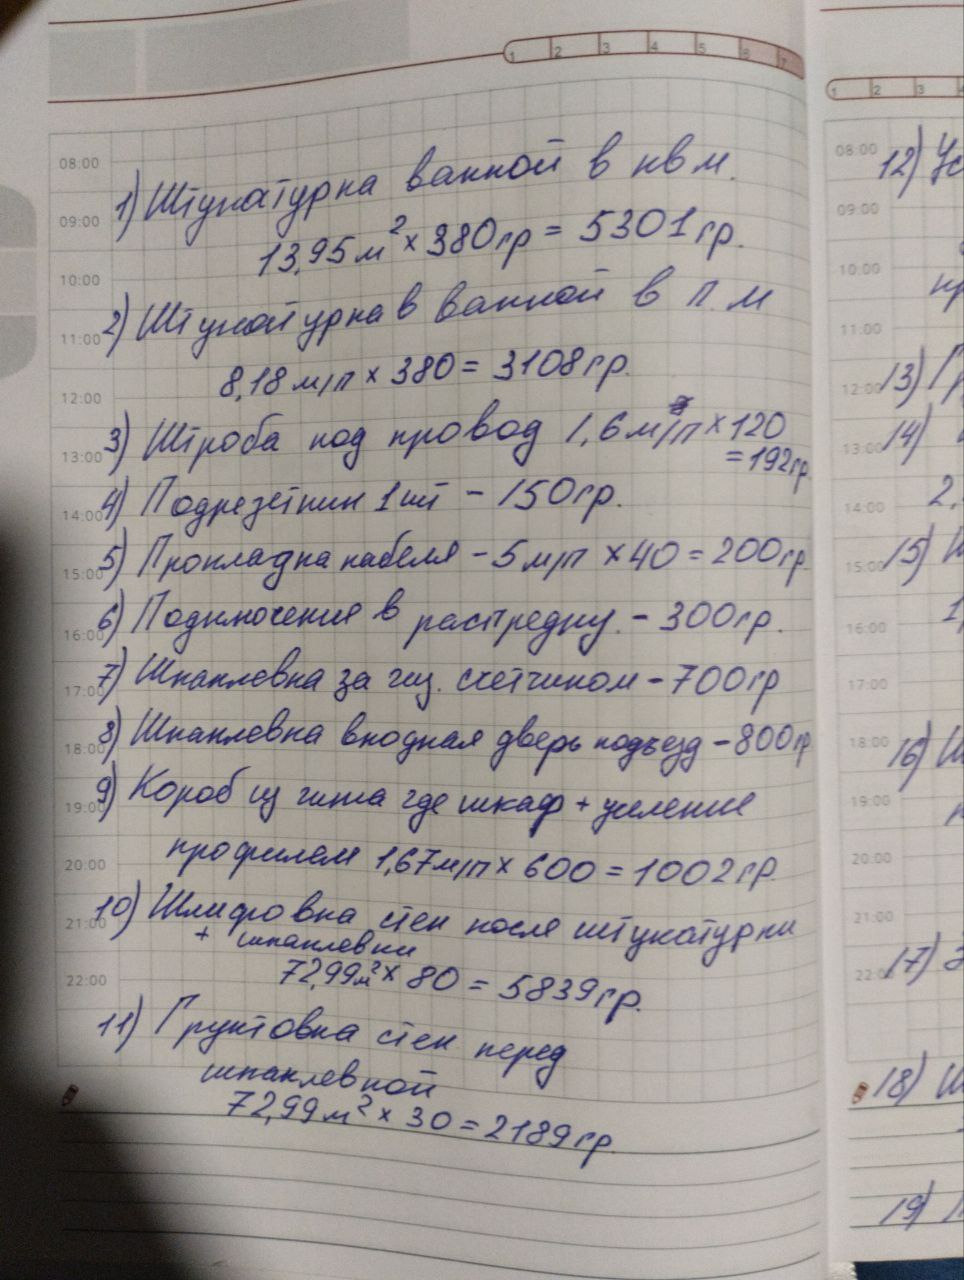 1 2 3 4 5 6 7
08:00
1) Штукатурка ванной в кв м.
09:00
13,95 м² × 380гр = 5301 гр.
10:00
2) Штукатурка в ванной в п. м
11:00
8,18 м/п × 380 = 3108 гр.
12:00
3) Штроба под провод 1,6 м/п × 120
13:00
= 192 гр.
4) Подрезетник 1 шт - 150 гр.
14:00
5) Прокладка кабеля - 5 м/п × 40 = 200 гр.
15:00
6) Подключения в распредку. - 300 гр.
16:00
7) Шпаклевка за газ. счетчиком - 700 гр
17:00
8) Шпаклевка входная дверь подъезд - 800 гр
18:00
9) Короб из гипса где шкаф + усиление
19:00
профилем 1,67 м/п × 600 = 1002 гр.
20:00
10) Шлифовка стен после штукатурки
21:00
+ шпаклевки
72,99 м² × 80 = 5839 гр.
22:00
11) Грунтовка стен перед
шпаклевкой
72,99 м² × 30 = 2189 гр.
1 2 3
08:00
12) Ус
09:00
10:00
пр
11:00
12:00
13) Гр
13:00
14)
14:00
2,
15:00
15)
16:00
1,
17:00
18:00
16) Ш
19:00
20:00
21:00
22:00
17)
18) Ш
19)